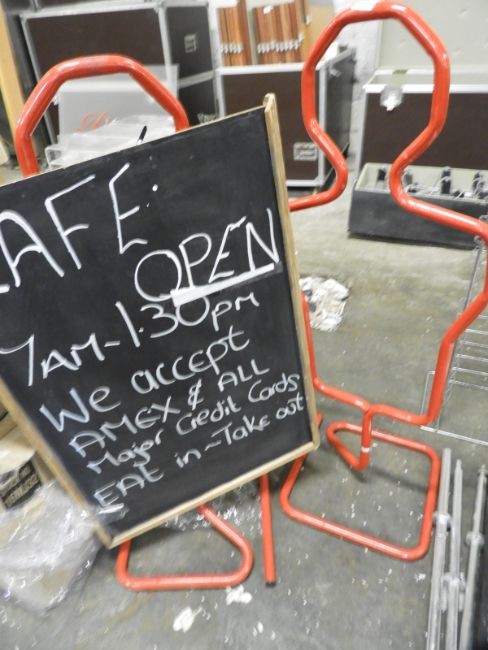 CAFE:
OPEN
7AM-1.30pm
We accept
AMEX & ALL
Major Credit Cards
EAt in~Take out